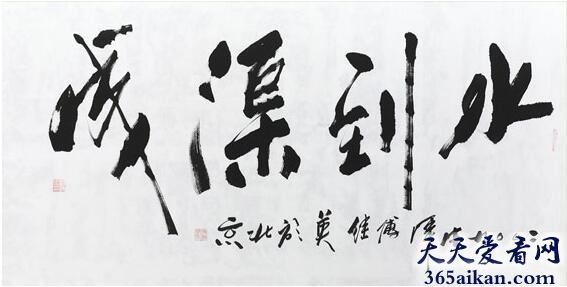 水到渠成
傅继英於北京
天天爱看网
365aikan.com